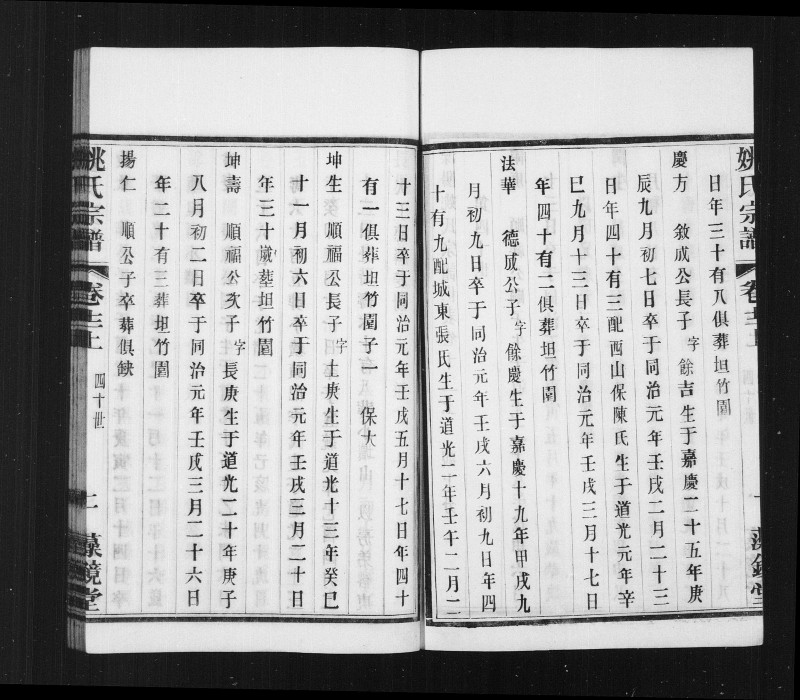 姚氏宗譜
卷三上
藻鏡堂
日年三十有八俱葬坦竹園
慶方 敘成公長子字餘吉生于嘉慶二十五年庚
辰九月初七日卒于同治元年壬戌二月二十三
日年四十有三配西山保陳氏生于道光元年辛
巳九月十三日卒于同治元年壬戌三月十七日
年四十有二俱葬坦竹園
法華 德成公子字餘慶生于嘉慶十九年甲戌九
月初九日卒于同治元年壬戌六月初九日年四
十有九配城東張氏生于道光二年壬午二月二
十三日卒于同治元年壬戌五月十七日年四十
有一俱葬坦竹園子一 保大
坤生 順福公長子字土庚生于道光十三年癸巳
十一月初六日卒于同治元年壬戌三月二十日
年三十歲葬坦竹園
坤壽 順福公次子字長庚生于道光二十年庚子
八月初二日卒于同治元年壬戌三月二十六日
年二十有三葬坦竹園
揚仁 順公子卒葬俱缺
姚氏宗譜
卷三上
四十世
二
藻鏡堂